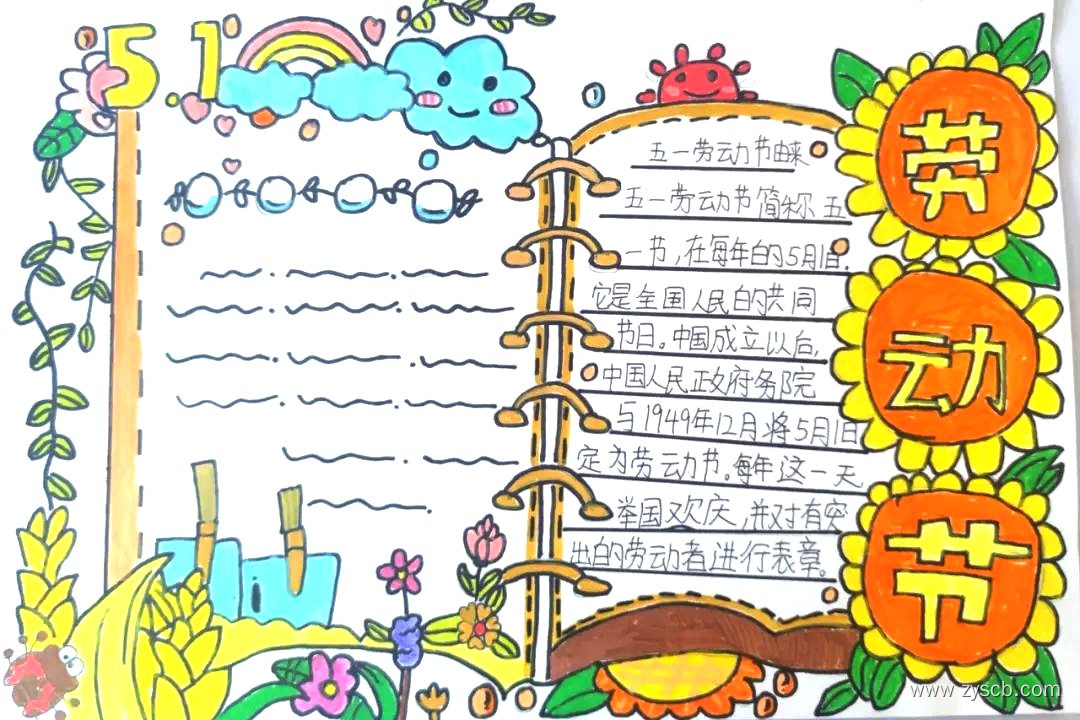 51
五一劳动节由来
五一劳动节简称五
一节,在每年的5月1日.
它是全国人民的共同
节日。中国成立以后,
中国人民正政府务院
与1949年12月将5月1日
定为劳动节。每年这一天
举国欢庆,并对有突
出的劳动者进行表章。
劳
动
节
www.zyscb.com